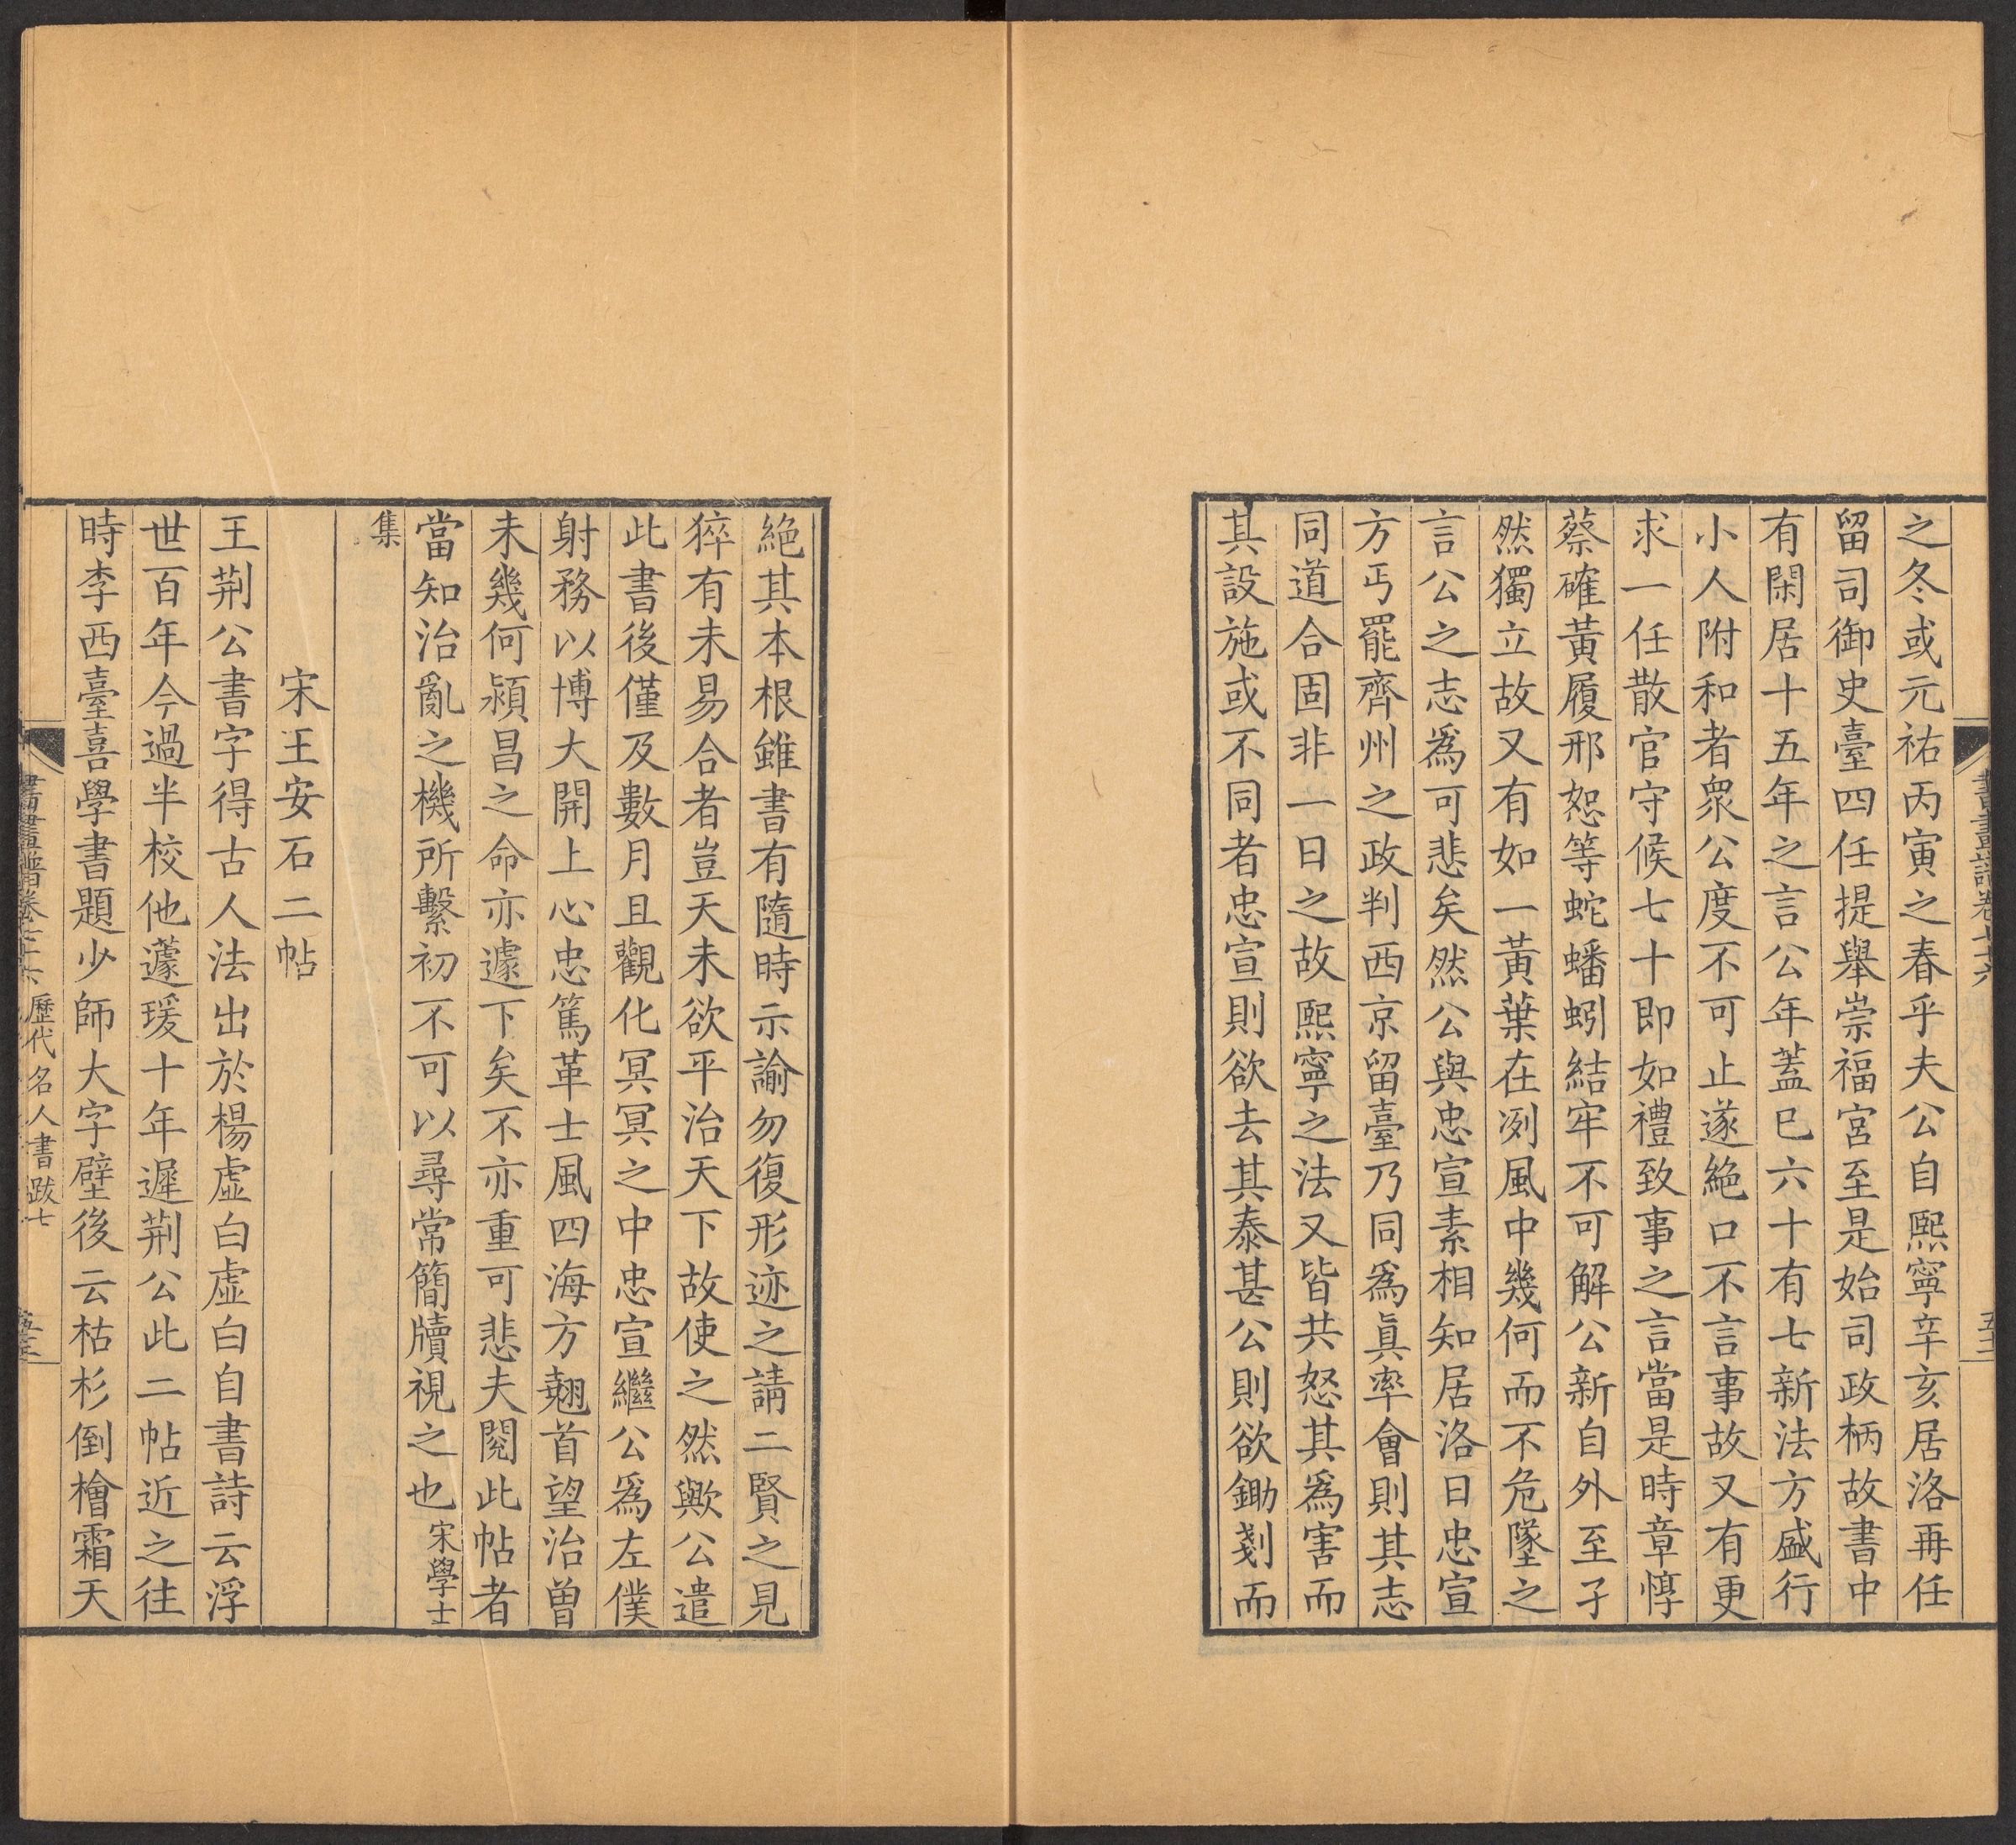 之冬或元祐丙寅之春乎夫公自熙寧辛亥居洛再任
留司御史臺四任提舉崇福宮至是始司政柄故書中
有閑居十五年之言公年蓋巳六十有七新法方盛行
小人附和者眾公度不可止遂絕口不言事故又有更
求一任散官守候七十即如禮致事之言當是時章惇
蔡確黃履邢恕等蛇蟠蚓結牢不可解公新自外至孑
然獨立故又有如一黃葉在冽風中幾何而不危墜之
言公之志爲可悲矣然公與忠宣素相知居洛日忠宣
方丐罷齊州之政判西京留臺乃同爲眞率會則其志
同道合固非一日之故熙寧之法又皆共怒其爲害而
其設施或不同者忠宣則欲去其泰甚公則欲鋤剗而
絕其本根雖書有隨時示諭勿復形迹之請二賢之見
猝有未易合者豈天未欲平治天下故使之然歟公遣
此書後僅及數月且觀化冥冥之中忠宣繼公爲左僕
射務以博大開上心忠篤革士風四海方翹首望治曾
未幾何潁昌之命亦遽下矣不亦重可悲夫閱此帖者
當知治亂之機所繫初不可以尋常簡牘視之也宋學士
集
宋王安石二帖
王荆公書字得古人法出於楊虛白虛白自書詩云浮
世百年今過半校他蘧瑗十年遲荆公此二帖近之往
時李西臺喜學書題少師大字壁後云枯杉倒檜霜天
書畫譜卷七十六 歷代名人書跋七